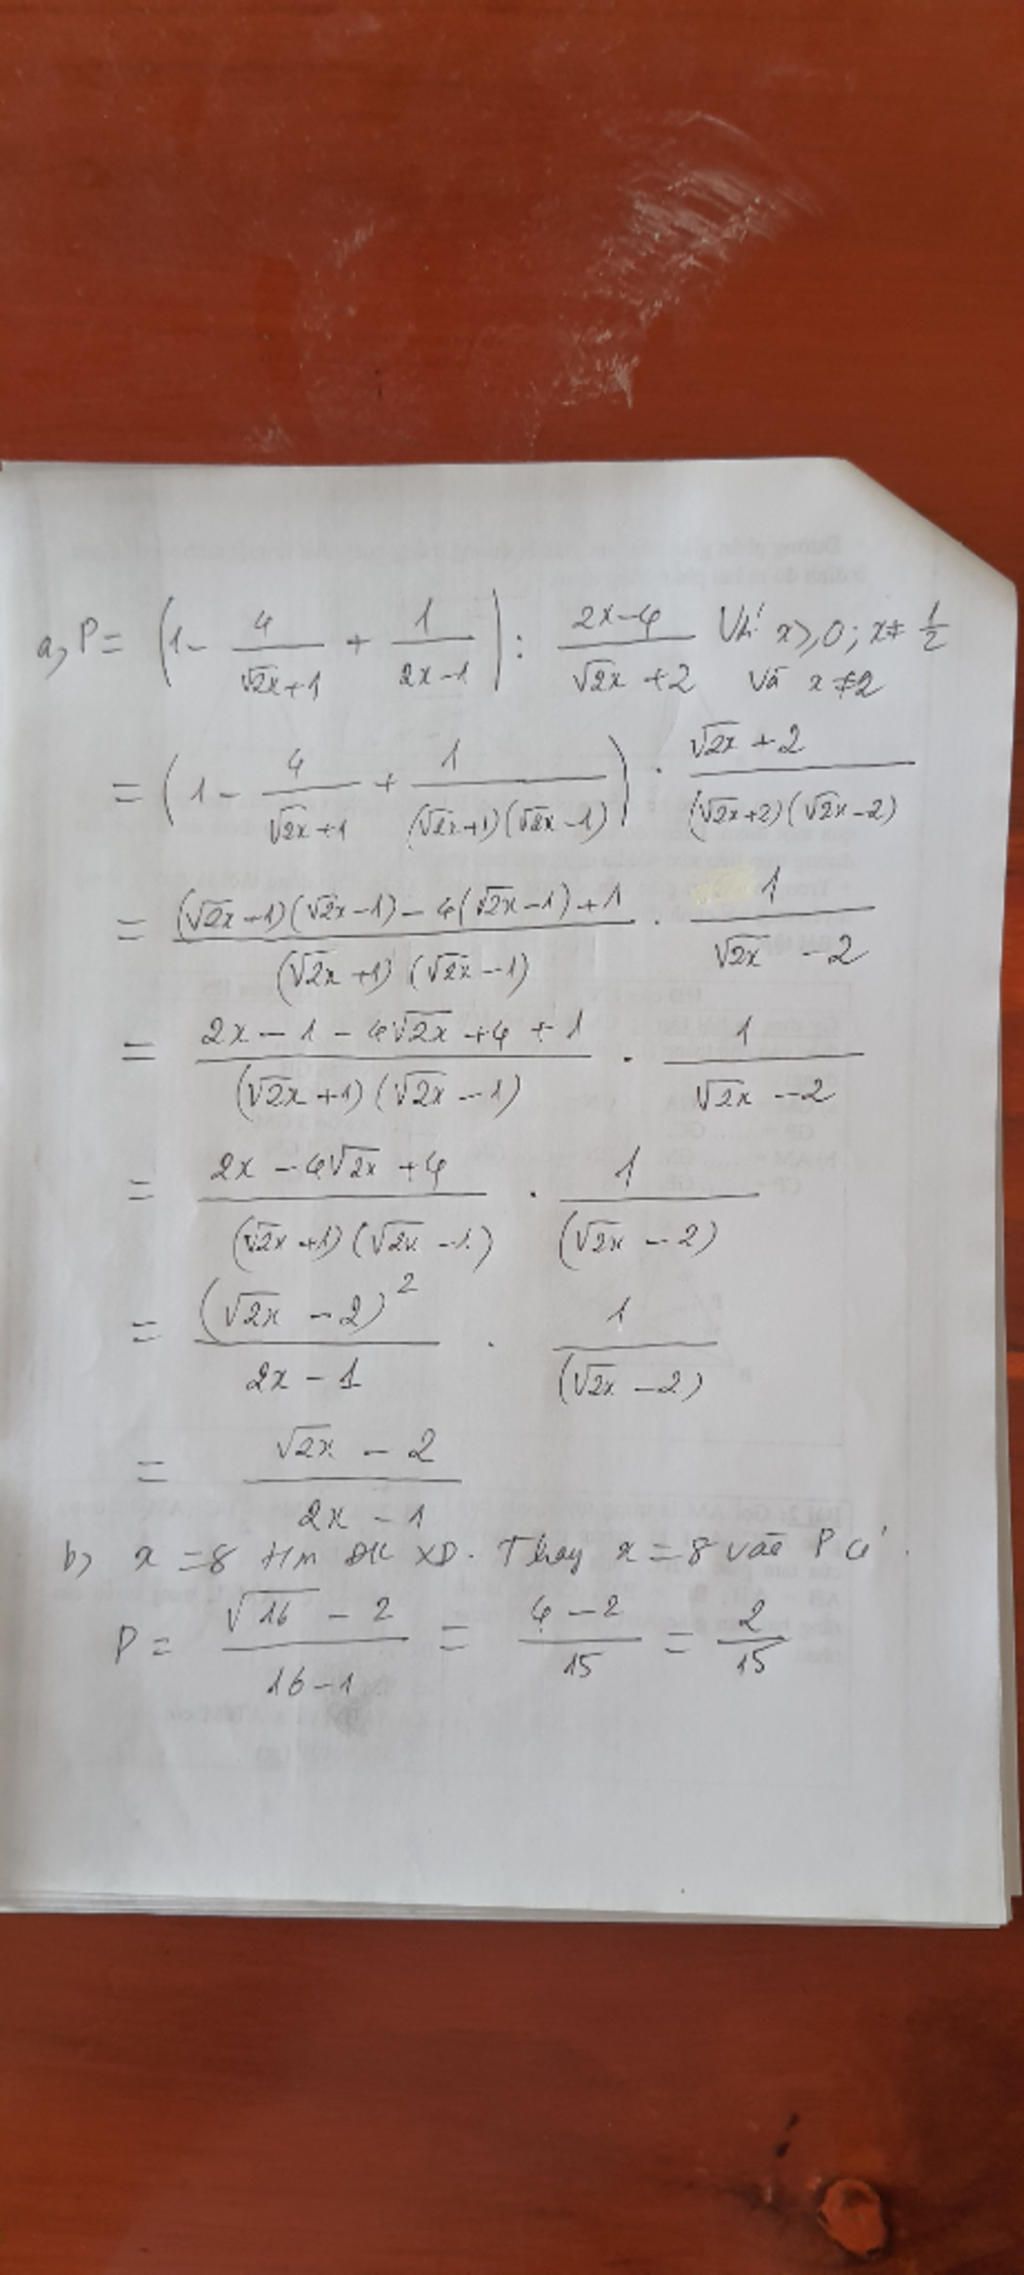 a, P = (1 - 4/(√2x+1) + 1/(2x-1)) : (2x-4)/(√2x+2) Với x⩾0; x≠1/2
và x≠2
= (1 - 4/(√2x+1) + 1/((√2x+1)(√2x-1))) · (√2x+2)/((√2x+2)(√2x-2))
= ((√2x+1)(√2x-1) - 4(√2x-1)+1)/((√2x+1)(√2x-1)) · 1/(√2x-2)
= (2x-1-4√2x+4+1)/((√2x+1)(√2x-1)) · 1/(√2x-2)
= (2x-4√2x+4)/((√2x+1)(√2x-1)) · 1/(√2x-2)
= (√2x-2)²/(2x-1) · 1/(√2x-2)
= (√2x-2)/(2x-1)
b, x=8 t/m ĐK XĐ. Thay x=8 vào P có
P = (√16-2)/(16-1) = (4-2)/15 = 2/15